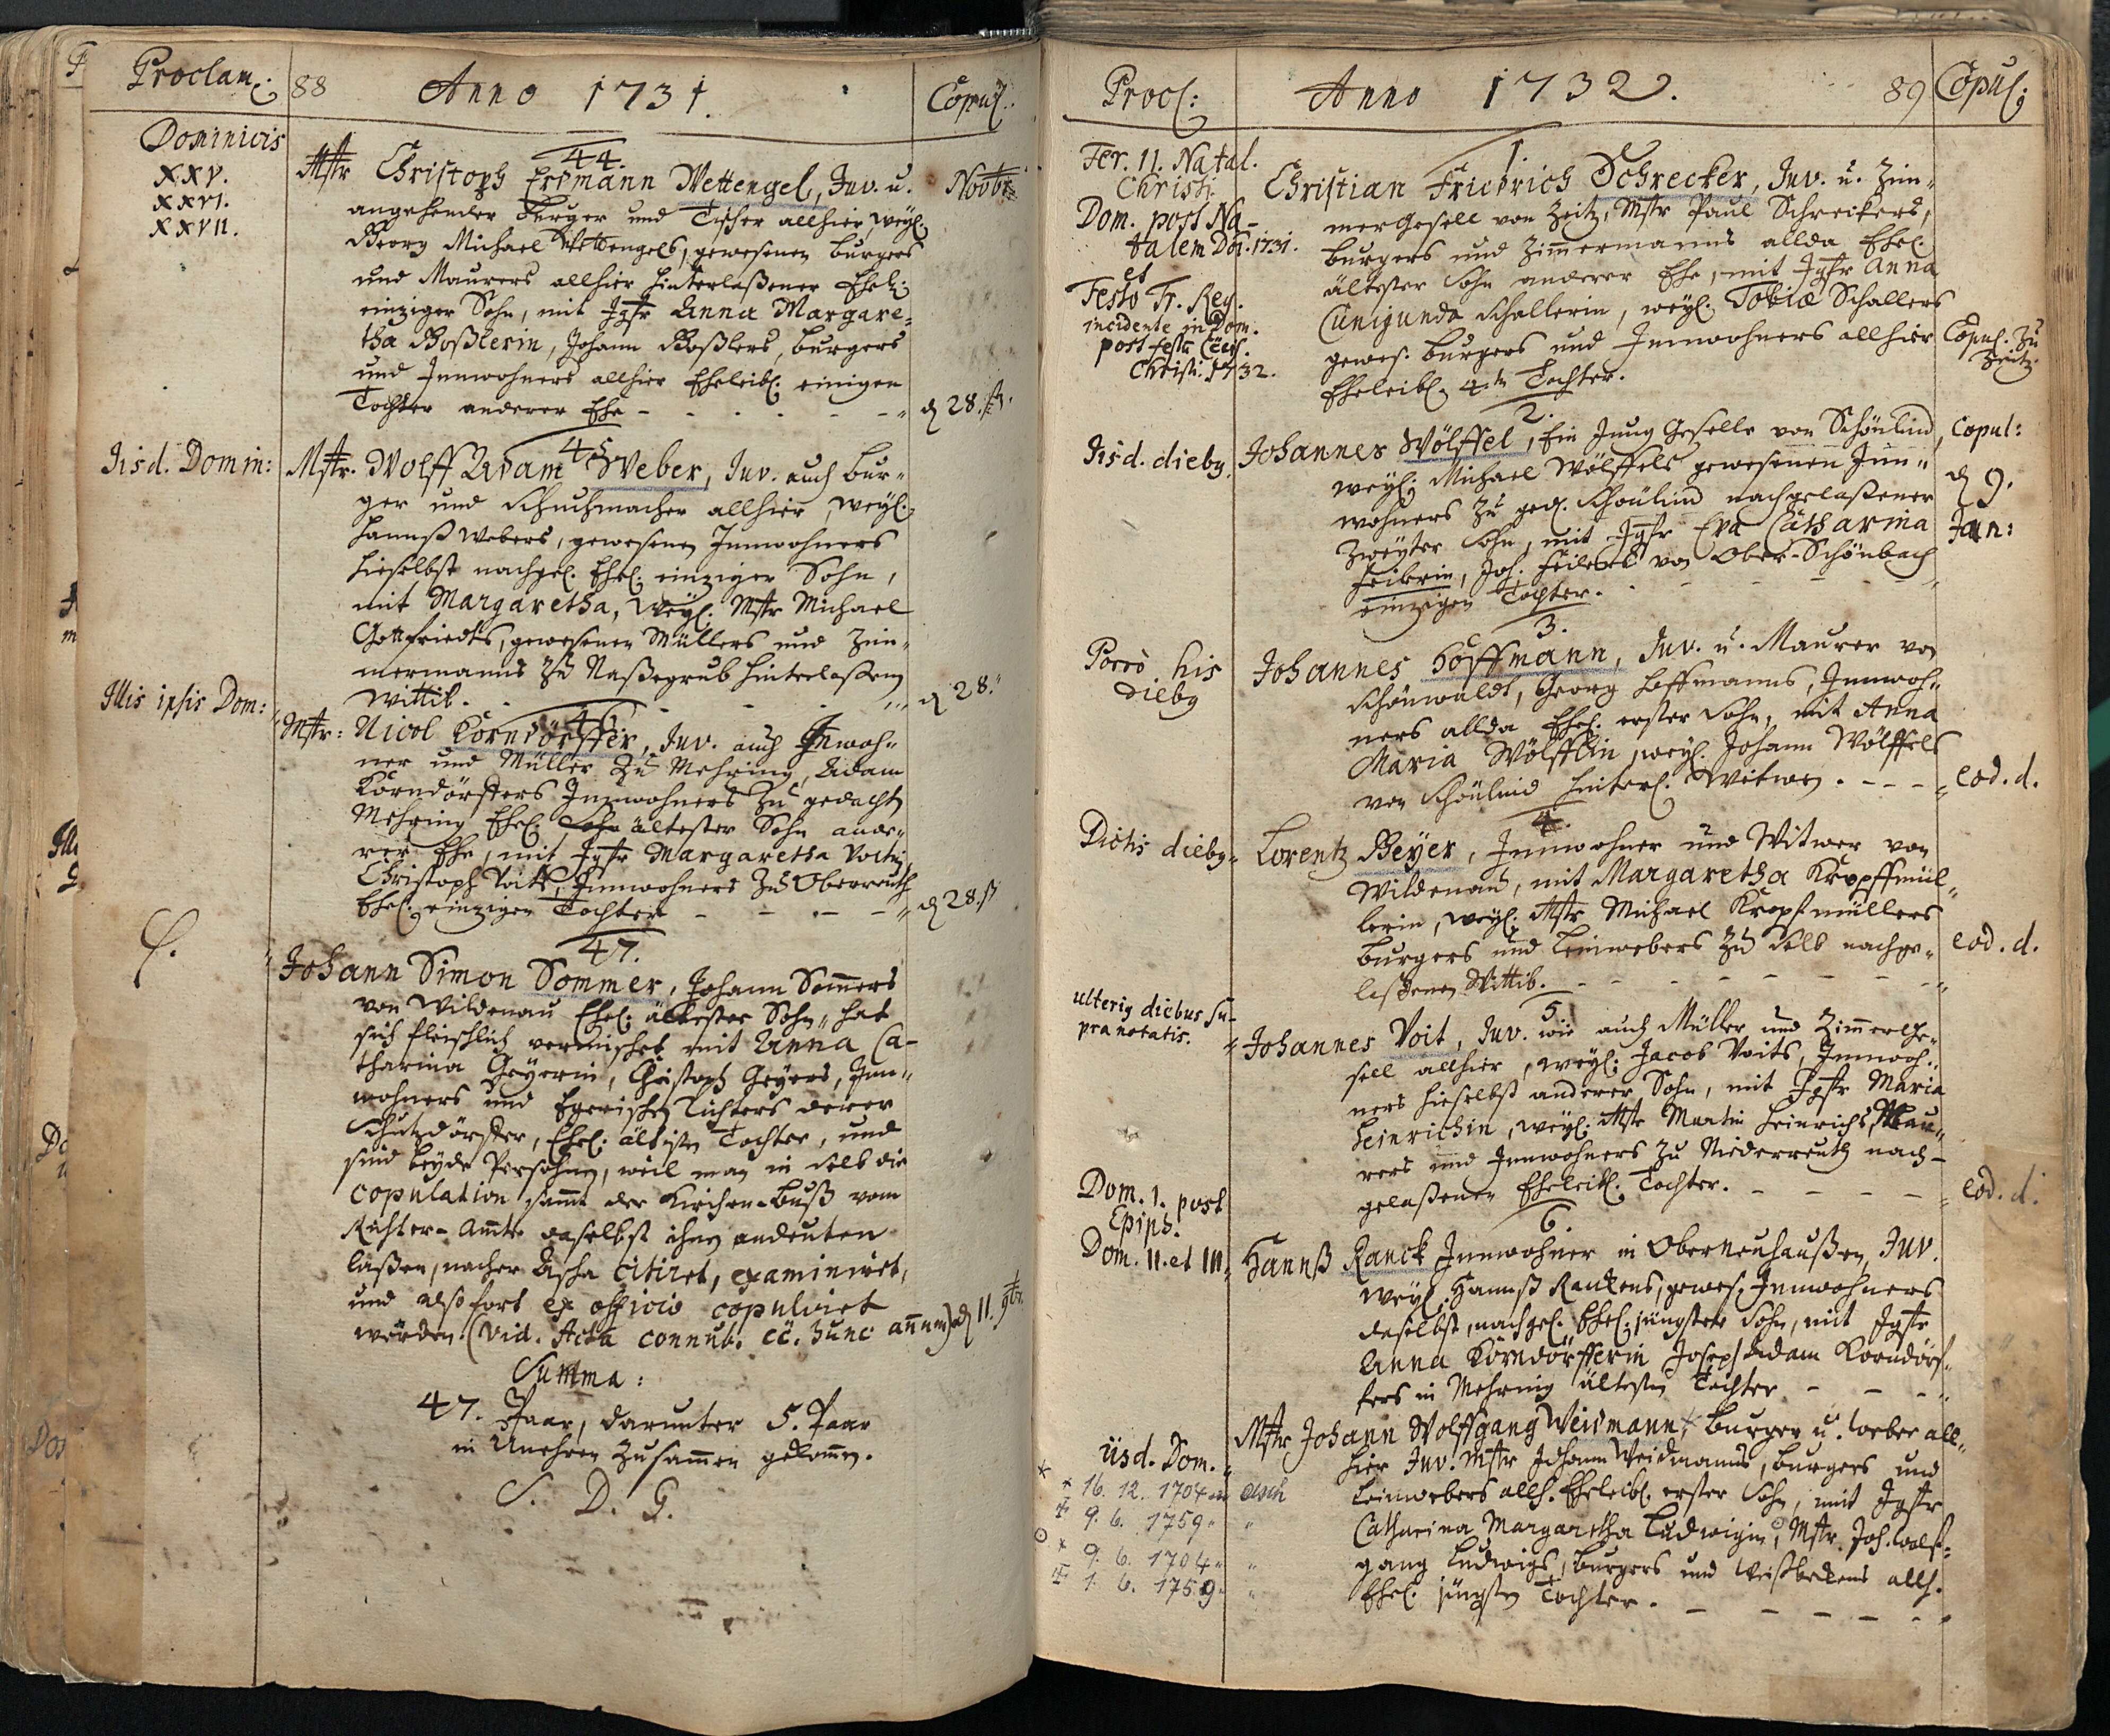 Proclam: 88 Anno 1731. Copul.
Dominicis
XXV.
XXVI.
XXVII.
44.
Mstr Christoph Erdmann Wettengel, Juv. u. Novbr
angehender Burger und Tischer allhier, weyl.
Georg Michael Wettengels, gewesenen Burgers
und Maurers allhier hinterlaßener Ehel.
einziger Sohn, mit Jgfr Anna Margare-
tha Boßlerin, Johann Boßlers, Burgers
und Innwohners allhier Eheleibl. einigen
Tochter anderer Ehe - - - - - d 28.
45
Iisd. Domin: Mstr. Wolff Adam Weber, Juv. auch Bur-
ger und Schuchmacher allhier, weyl.
Hannß Webers, gewesenen Innwohners
hieselbst nachgel. Ehel. einziger Sohn,
mit Margaretha, weyl. Mstr Michael
Gottfriedts, gewesenen Müllers und Zim-
mermanns zu Naßegrub hinterlaßen
Wittib. - - - d 28.
46
Illis ipsis Dom: Mstr: Nicol Korndörffer, Juv. auch Inwoh-
ner und Müller zu Mehring, Adam
Korndörffers Innwohners zu gedacht
Mehring Ehel. ältester Sohn ande-
rer Ehe, mit Jgfr Margaretha Voitin
Christoph Voits, Innwohners zu Oberreuth
Ehel. einzigen Tochter - - - - d 28.
47.
Johann Simon Sommer, Johann Somers
von Wildenau Ehel. ältester Sohn, hat
sich fleischlich vermischet mit Anna Ca-
tharina Geyerin, Christoph Geyers, Inn-
wohners und Egerischen Richters derer
Schutzdörffer, Ehel. ältisten Tochter, und
sind beyde Persohnen, weil man in Selb die
copulation samt der Kirchen-Buß vom
Richter-Amte daselbst ihnen andeuten
laßen, nacher Ascha citiret, examiniret,
und also fort ex officio copuliret
worden. (vid. Acta connub. hunc annum) d 11. 9br.
Summa:
47. Paar, darunter 5. Paar
in Unehren zusamen gekomen.
S. D. G.
Procl: Anno 1732. 89 Copul:
Fer. II. Natal.
Christi
Dom. post Na-
talem Dni. 1731.
et
Festo Tr. Reg.
incidente in Dom.
post festum Circ.
Christi. 1732.
1.
Christian Friedrich Schrecker, Juv. u. Zim-
mergesell von Zeitz, Mstr Paul Schreckers,
Burgers und Zimermanns allda Ehel.
ältester Sohn anderer Ehe, mit Jgfr Anna
Cunigunda Schallerin, weyl. Tobiæ Schallers
gewes. Burgers und Innwohners allhier Copul. zu
Eheleibl. 4te Tochter. Zeitz.
2.
Iisd. dieb9. Johannes Wölffel, Ein Jung Geselle von Schönlind, Copul:
weyl. Michael Wölffels gewesenen Inn- d 9.
wohners zu ged. Schönlind nachgelaßener
zweyter Sohn, mit Jgfr Eva Catharina Jan:
Feilerin, Joh. Feilers von Ober-Schönbach
einzigen Tochter.
3.
Porrò his
dieb9 Johannes Hoffmann, Juv. u. Maurer von
Schönwaldt, Georg Hoffmanns, Innwoh-
ners allda Ehel. erster Sohn, mit Anna
Maria Wölfflin, weyl. Johann Wölffels
von Schönlind hinterl. Witwen. - - - eod. d.
4.
Dictis dieb9. Lorentz Beyer, Innwohner und Witwer von
Wildenau, mit Margaretha Kropffmül-
lerin, weyl. Mstr Michael Kropfmüllers
Burgers und Leinwebers zu Selb nachge- eod. d.
laßenen Wittib. - - - -
5.
ulterig diebus su-
pra notatis. Johannes Voit, Juv. wie auch Müller und Zimerge-
sell allhier, weyl. Jacob Voits, Innwoh-
ners hieselbst anderer Sohn, mit Jgfr Maria
Heinrichin, weyl. Mstr Martin Heinrichs, Mau-
rers und Innwohners zu Niederreuth nach-
gelaßenen Eheleibl. Tochter. - - - - eod. d.
6.
Dom. I. post
Epiph.
Dom. II. et III. Hannß Ranck Innwohner in Oberneuhaußen, Juv.
weyl. Hannß Ranckens, gewes. Innwohners
daselbst, nachgel. Ehel. jüngster Sohn, mit Jgfr
Anna Korndörfferin Joseph Adam Korndörf-
fers in Mehring ältesten Tochter - - -
iisd. Dom. Mstr Johann Wolffgang Weidmann, Burger u. Weber all-
hier Juv. Mstr Johann Weidmanns, Burgers und
Leinwebers allh. Eheleibl. erster Sohn, mit Jgfr
Catharina Margaretha Ludwigin, Mstr. Joh. Wolf-
gang Ludwigs, Burgers und Weißbeckens allh.
Ehel. jüngsten Tochter. - - - - -
* 16. 12. 1704 in Asch
9. 6. 1759 " "
* 9. 6. 1704 " "
1. 6. 1759 " "